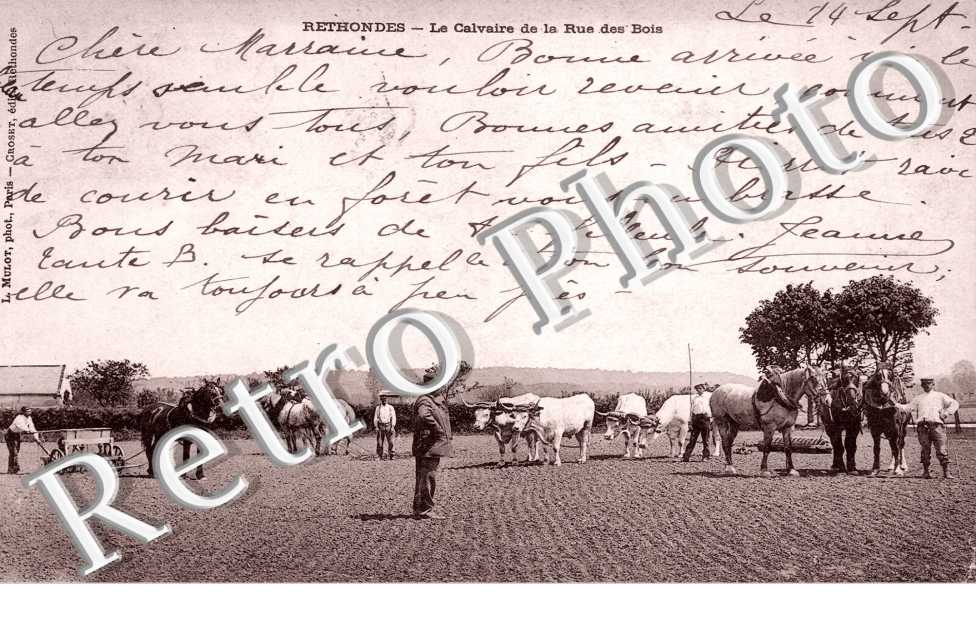 RETHONDES — Le Calvaire de la Rue des Bois
Le 14 Sept-
Chère Marraine, Bonne arrivée ici le
temps semble vouloir revenir comment
allez vous tous, Bonnes amitiés de tous
à ton mari et ton fils -
de courir en forêt vous embrasse.
Bons baisers de Jeanne
Tante B. se rappelle à ton bon souvenir,
elle va toujours à peu près -
L. MULOT, phot., Paris — CROSET, édit., Rethondes
Retro Photo